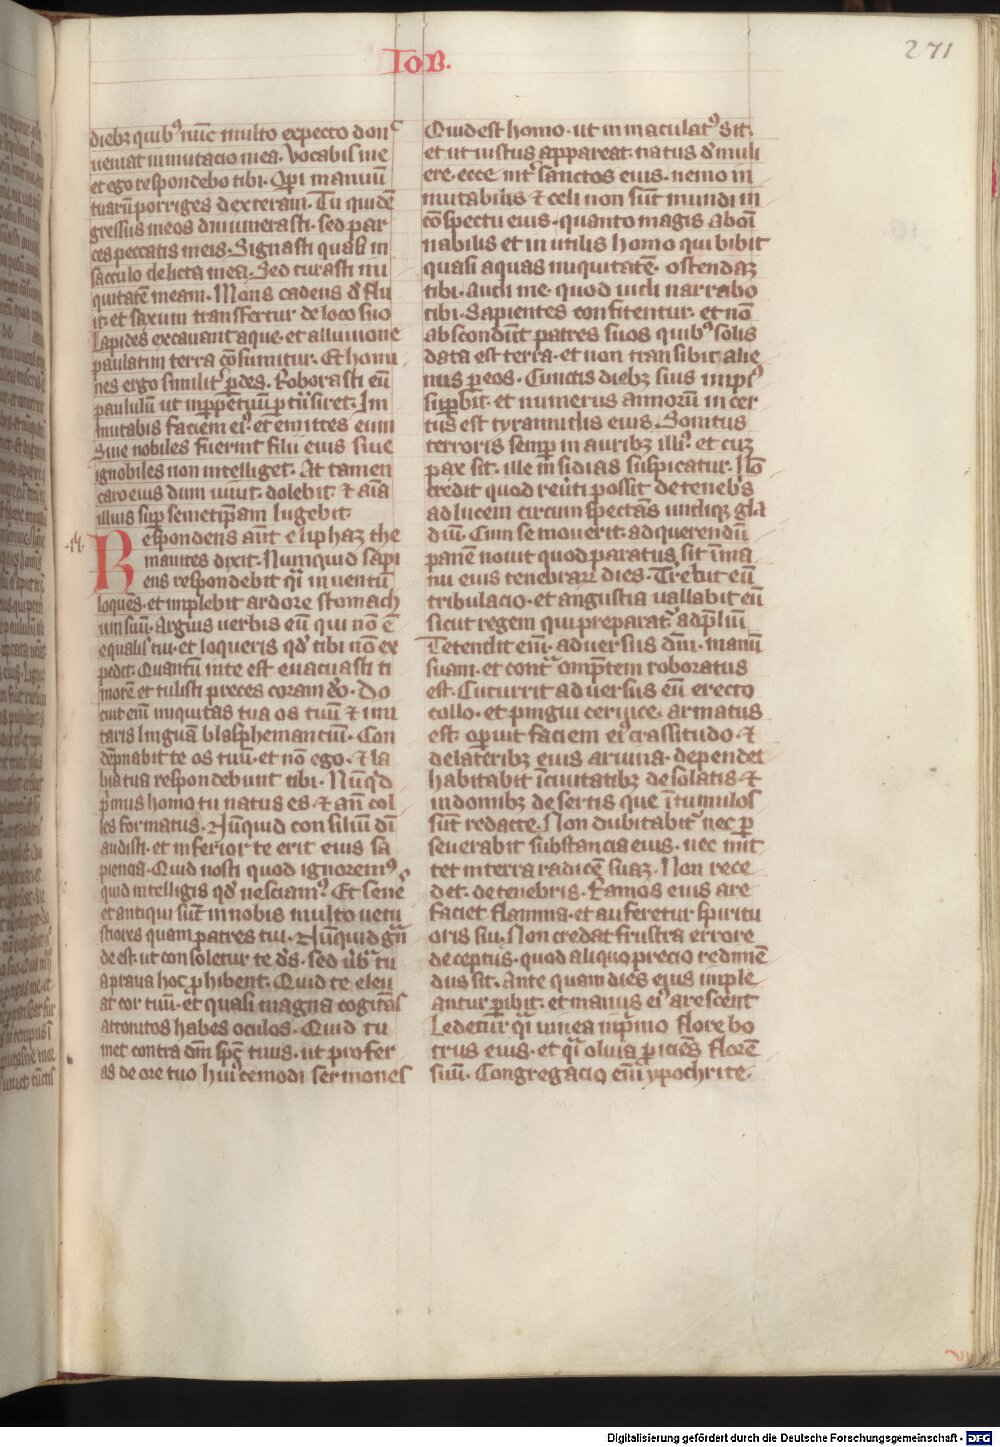 Iob.
271
dieb₉ quib⁹ nūc milito expecto don̄c
ueniat inmutacio mea. Vocabis me
et ego respondebo tibi. Op̄i manuū
tuarū porriges dexteram. Tu quidē
gressus meos dinumerasti. sed par
ces peccatis meis. Signasti quasi in
sacculo delicta mea. Sed curasti ini
quitatē meam. Mons cadens d̄ flu
it. et saxum transfertur de loco suo
Lapides excauant aque. et alluuione
paulatim terra cōsumitur. Et homi
nes ergo similit̄ p̄des. Roborasti eū
paululū ut inp̄petuū p̄ trāsiret. Im
mutabis faciem ei⁹. et emittes eum
Siue nobiles fuerint filii eius siue
ignobiles non intelliget. At tamen
caro eius dum uiuit. dolebit. ⁊ aīa
illius sup̄ semetip̄am lugebit.
Respondens aūt eliphaz the
manites dixit. Numquid sapi
ens respondebit qi in uentū
loquēs. et implebit ardore stomach
um suū. Arguis uerbis eū qui nō ē
equalis tui. et loqueris qd̄ tibi nō ex
pedit. Quantū in te est euacuasti ti
morē et tulisti preces coram dō. Do
cuit eni iniquitas tua os tuū ⁊ imi
taris linguā blasphemanciū. Con
dēpnabit te os tuū. et non ego. ⁊ la
bia tua respondebunt tibi. Nūqd
p̄mus homo tu natus es ⁊ an̄ col
les formatus. Nūquid consiliū dī
audisti. et inferior te erit eius sa
piencia. Quid nosti quod ignorem⁹.
quid intelligis qd̄ nesciam⁹. Et senē
et antiqui sūt in nobis multo uetu
stiores quam patres tui. Nūquid ḡn
de est. ut consoletur te d̄s. sed ūb̄ tu
a praua hoc p̄hibent. Quid te eleu
at cor tuū. et quasi magna cogitās
attonitos habes oculos. Quid tu
met contra dm̄ sp̄c tuus. ut profer
as de ore tuo hui⁹cemodi sermones
Quid est homo. ut inmaculat⁹ sit.
et ut iustus appareat. natus d̄ muli
ere. ecce int̄ sanctos eius. nemo in
mutabilis ⁊ celi non sūt mundi in
cōspectu eius. quanto magis aboī
nabilis et inutilis homo qui bibit
quasi aquas iniquitatē. ostendaz
tibi. Audi me. quod uidi narrabo
tibi. Sapientes confitentur. et nō
abscondūt patres suos quib⁹ solis
data est terra. et non transibit alie
nus p̄ eos. Cunctis dieb₉ suis impi⁹
sup̄bit. et numerus annorū incer
tus est tyrannidis eius. Sonitus
terroris semp̄ in aurib₉ illi⁹. et cuz
pax sit. ille insidias suspicatur. Nō
credit quod reūti possit de tenebs
ad lucem circum spectās undiqz gla
diū. Cum se mouerit. ad querendū
panē nouit quod paratus sit ī ma
nu eius tenebrarꝝ dies. Trebūt eū
tribulacio. et angustia uallabit eū
sicut regem qui preparat̄ ad p̄liū
Tetendit eni. aduersus dm̄. manū
suam. et cont̄ omp̄tem roboratus
est. Cucurrit aduersus eū erecto
collo. et pingui ceruice. armatus
est. op̄uit faciem ei⁹ crassitudo. ⁊
de laterib₉ eius aruina. dependet
habitabit ī ciuitatib₉ desolatis. ⁊
in domib₉ desertis que ī tumulos
sūt redacte. Non ditabit̄ nec p̄
seuerabit substancia eius. nec mit
tet in terra radicē suaz. Non rece
det. de tenebris. Ramos eius are
faciet flamma. et auferetur spiritu
oris sui. Non credat frustra errore
deceptus. quod aliquo precio redimē
dus sit. Ante quam dies eius imple
antur p̄ibit. et manus ei⁹ arescent
Ledetur qi uinea in p̄mo flore bo
trus eius. et qi oliua p̄iciēs florē
suū. Congregacio eni ypochrite.
Digitalisierung gefördert durch die Deutsche Forschungsgemeinschaft - DFG